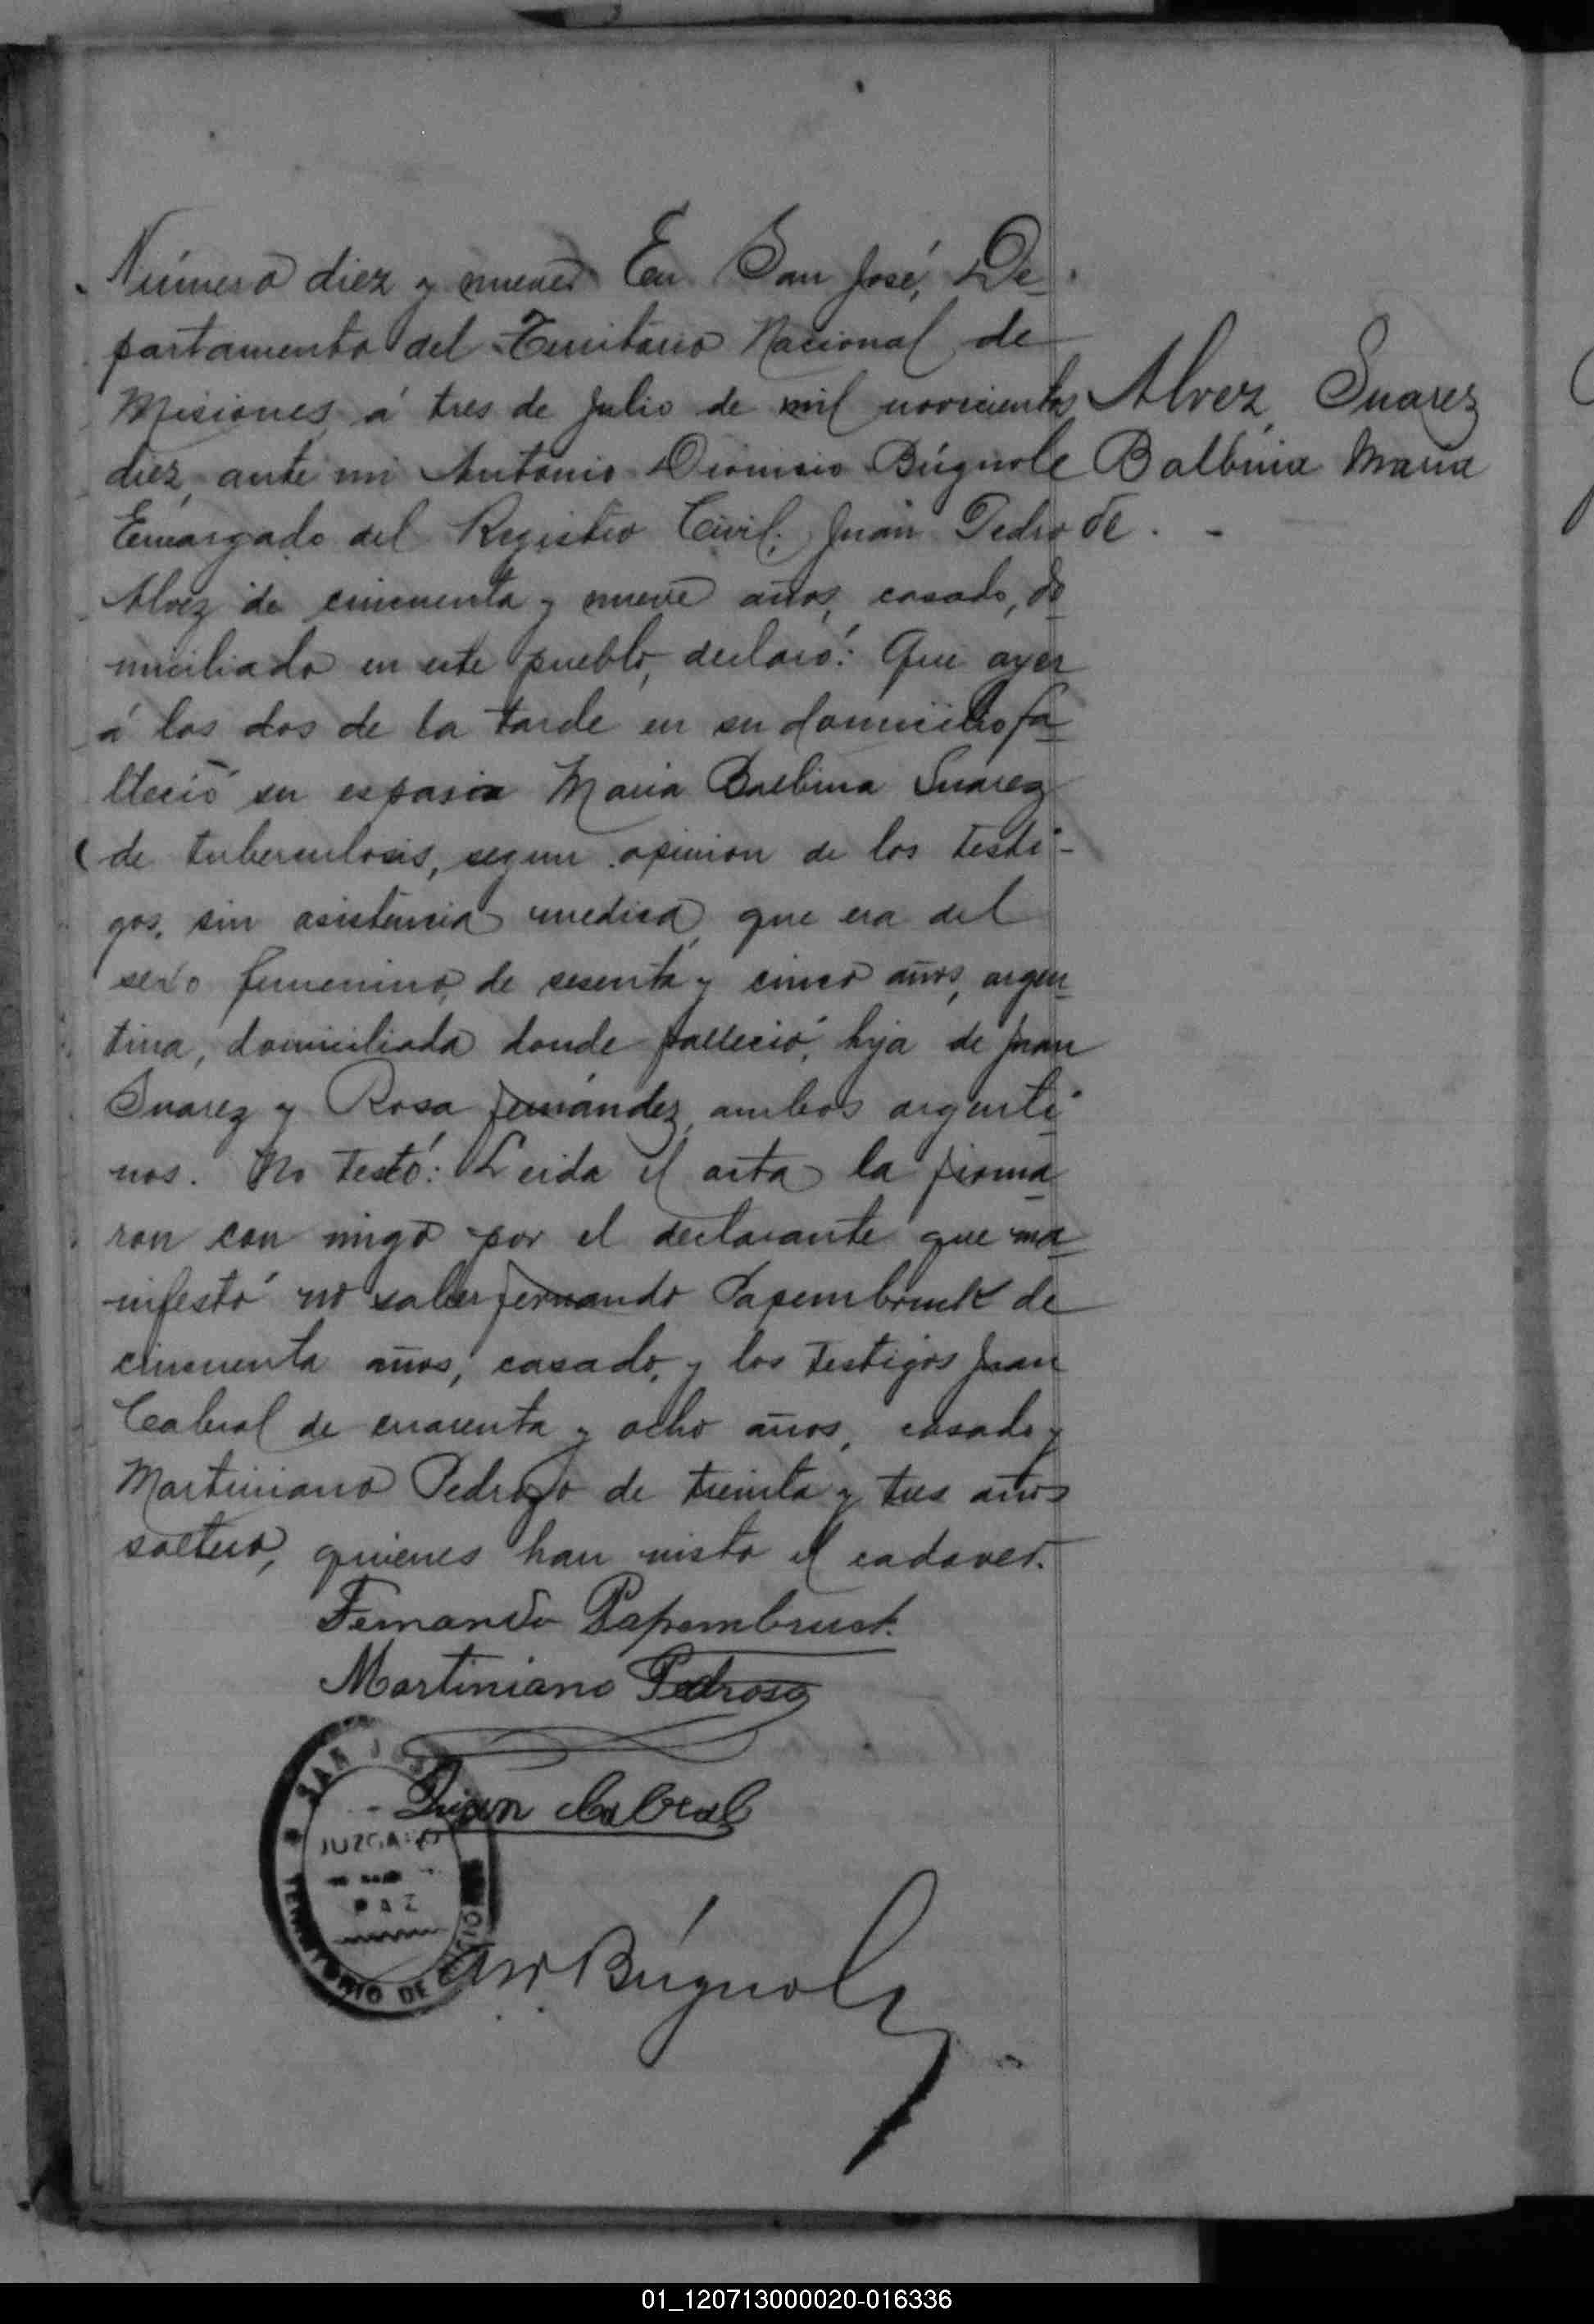 Número diez y nueve En San José, De-
partamento del Territorio Nacional de
Misiones á tres de Julio de mil novecientos
diez, ante mi Antonio Dionisio Búgnole
Encargado del Registro Civil, Juan Pedro
Alvez de cincuenta y nueve años, casado, do
miciliado en este pueblo, declaró: Que ayer
á las dos de la tarde en su domicilio fa
lleció su esposa Maria Balbina Suarez
de tuberculosis, segun opinion de los testi-
gos, sin asistencia medica, que era del
sexo femenino, de sesenta y cinco años, argen
tina, domiciliada donde falleció, hija de Juan
Suarez y Rosa Fernández, ambos argenti
nos. No testó: Leida el acta la firma
ron con migo por el declarante que ma
nifestó no saber Fernando Papembruck de
cincuenta años, casado, y los testigos Juan
Cabral de cuarenta y ocho años, casado y
Martiniano Pedrozo de treinta y tres años
soltero, quienes han visto el cadaver.
Alvez, Suarez
Balbina Maria
de. -
Fernando Papembruck.
Martiniano Pedroso
Juan Cabral
SAN JOSÉ
JUZGADO
PAZ
TERRITORIO DE MISIONES
Búgnole
01_120713000020-016336